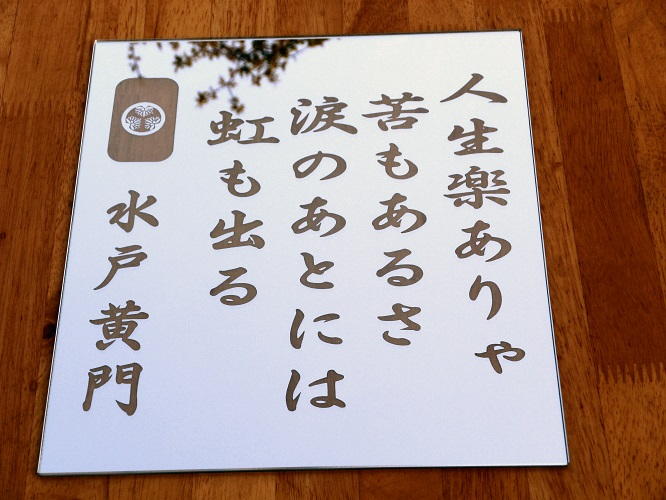 人生楽ありゃ
苦もあるさ
涙のあとには
虹も出る
水戸黄門